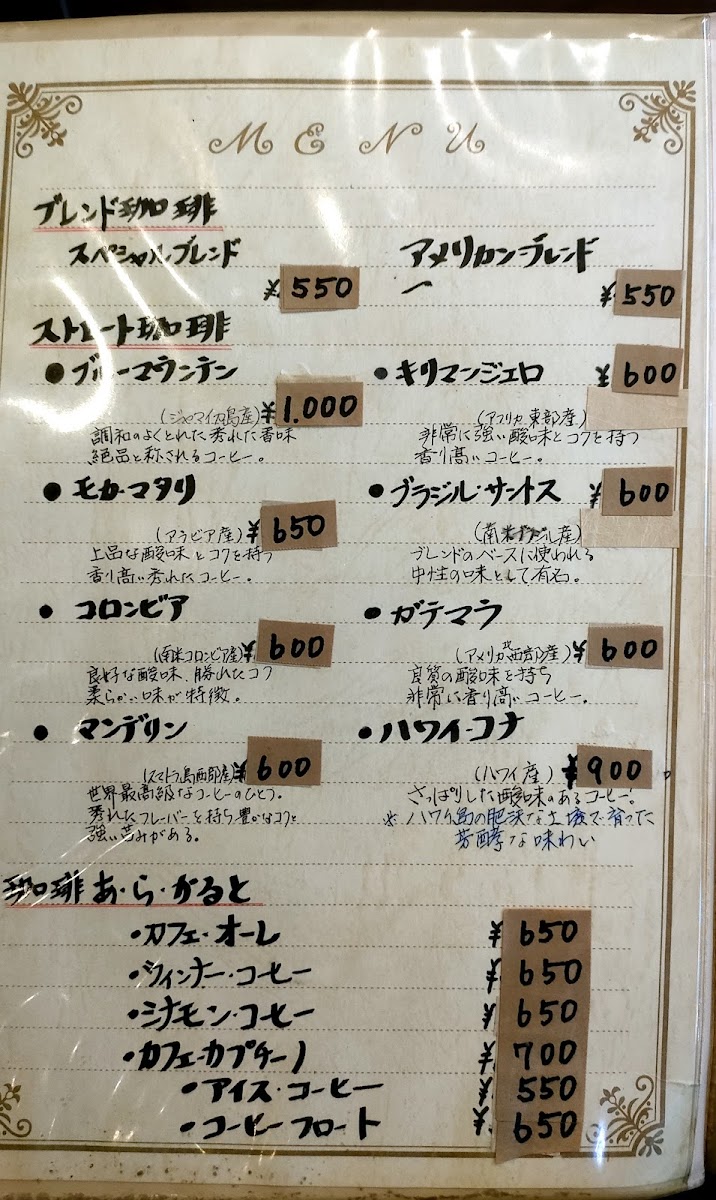 MENU
ブレンド珈琲
スペシャルブレンド
¥550
アメリカン・ブレンド
¥550
ストレート珈琲
●ブルーマウンテン
(ジャマイカ島産) ¥1.000
調和のよくとれた秀れた香味
絶品と称されるコーヒー。
●キリマンジェロ ¥600
(アフリカ東部産)
非常に強い酸味とコクを持つ
香り高いコーヒー。
●モカ・マタリ
(アラビア産) ¥650
上品な酸味とコクを持つ
香り高い秀れたコーヒー。
●ブラジル・サントス ¥600
(南米ブラジル産)
ブレンドのベースに使われる
中性の味として有名。
●コロンビア
(南米コロンビア産) ¥600
良好な酸味、勝れたコク
柔らかい味が特徴。
●ガテマラ
(アメリカ西部産) ¥600
良質の酸味を持ち
非常に香り高いコーヒー。
●マンデリン
(スマトラ島西部産) ¥600
世界最高級なコーヒーのひとつ。
秀れたフレーバーを持ち豊かなコクと
強い苦みがある。
●ハワイ・コナ
(ハワイ産) ¥900
さっぱりした酸味のあるコーヒー。
※ハワイ島の肥沃な土壌で育った
芳醇な味わい
珈琲あ・ら・かると
・カフェ・オーレ ¥650
・ウィンナー・コーヒー ¥650
・シナモン・コーヒー ¥650
・カフェ・カプチーノ ¥700
・アイス・コーヒー ¥550
・コーヒーフロート ¥650